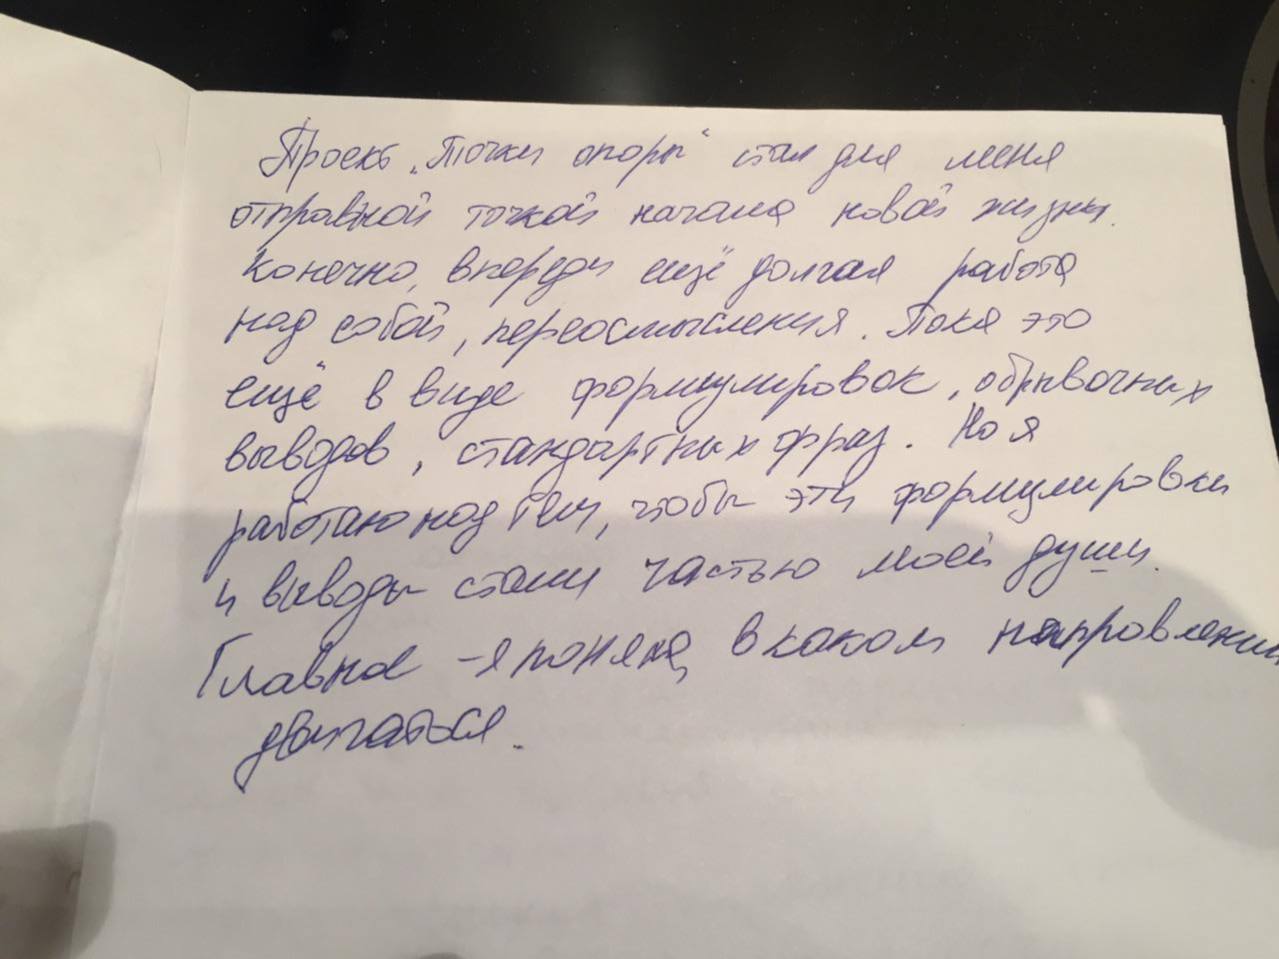 Проект „Точки опоры" стал для меня
отправной точкой начала новой жизни.
Конечно, впереди ещё долгая работа
над собой, переосмысления. Пока это
ещё в виде формулировок, обрывочных
выводов, стандартных фраз. Но я
работаю над тем, чтобы эти формулировки
и выводы стали частью моей души.
Главное - я поняла, в каком направлении
двигаться.